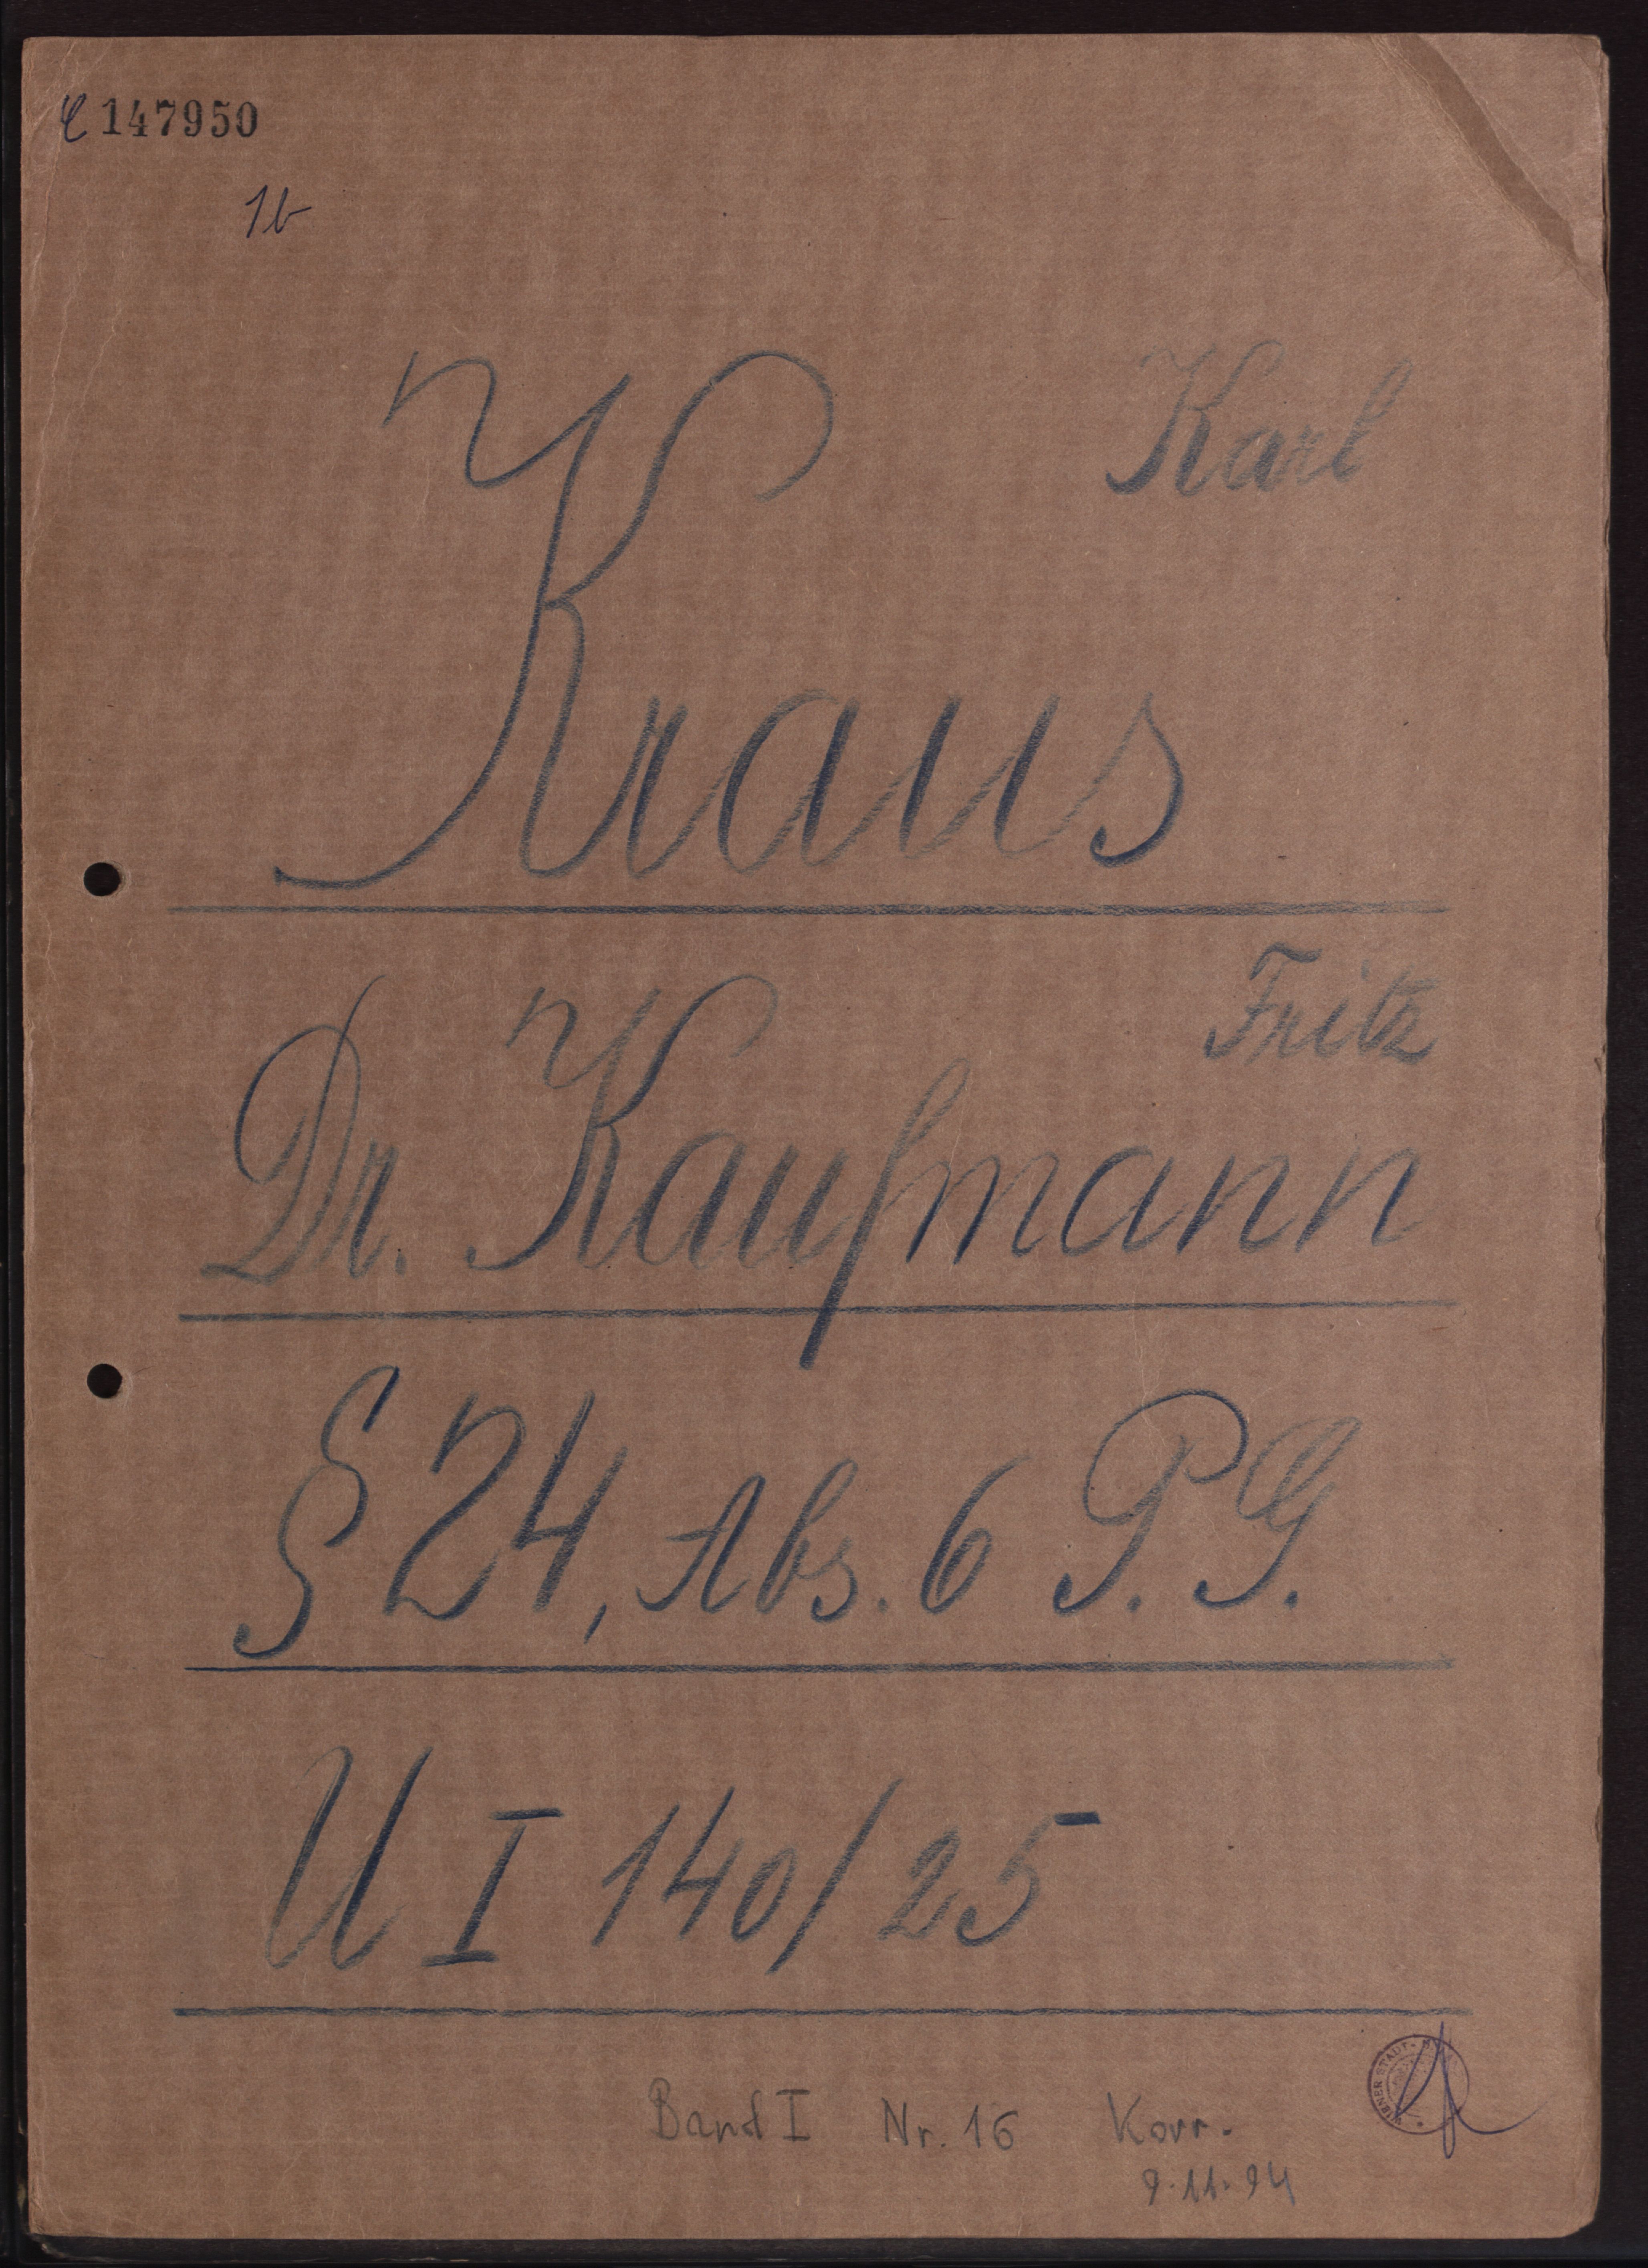 147950
1b
Karl
Kraus
Fritz
Dr. Kaufmann
§ 24, Abs. 6 P. G.
U I 140/25
WIENER STADT-
Band I Nr. 16 Korr.
9.11.94